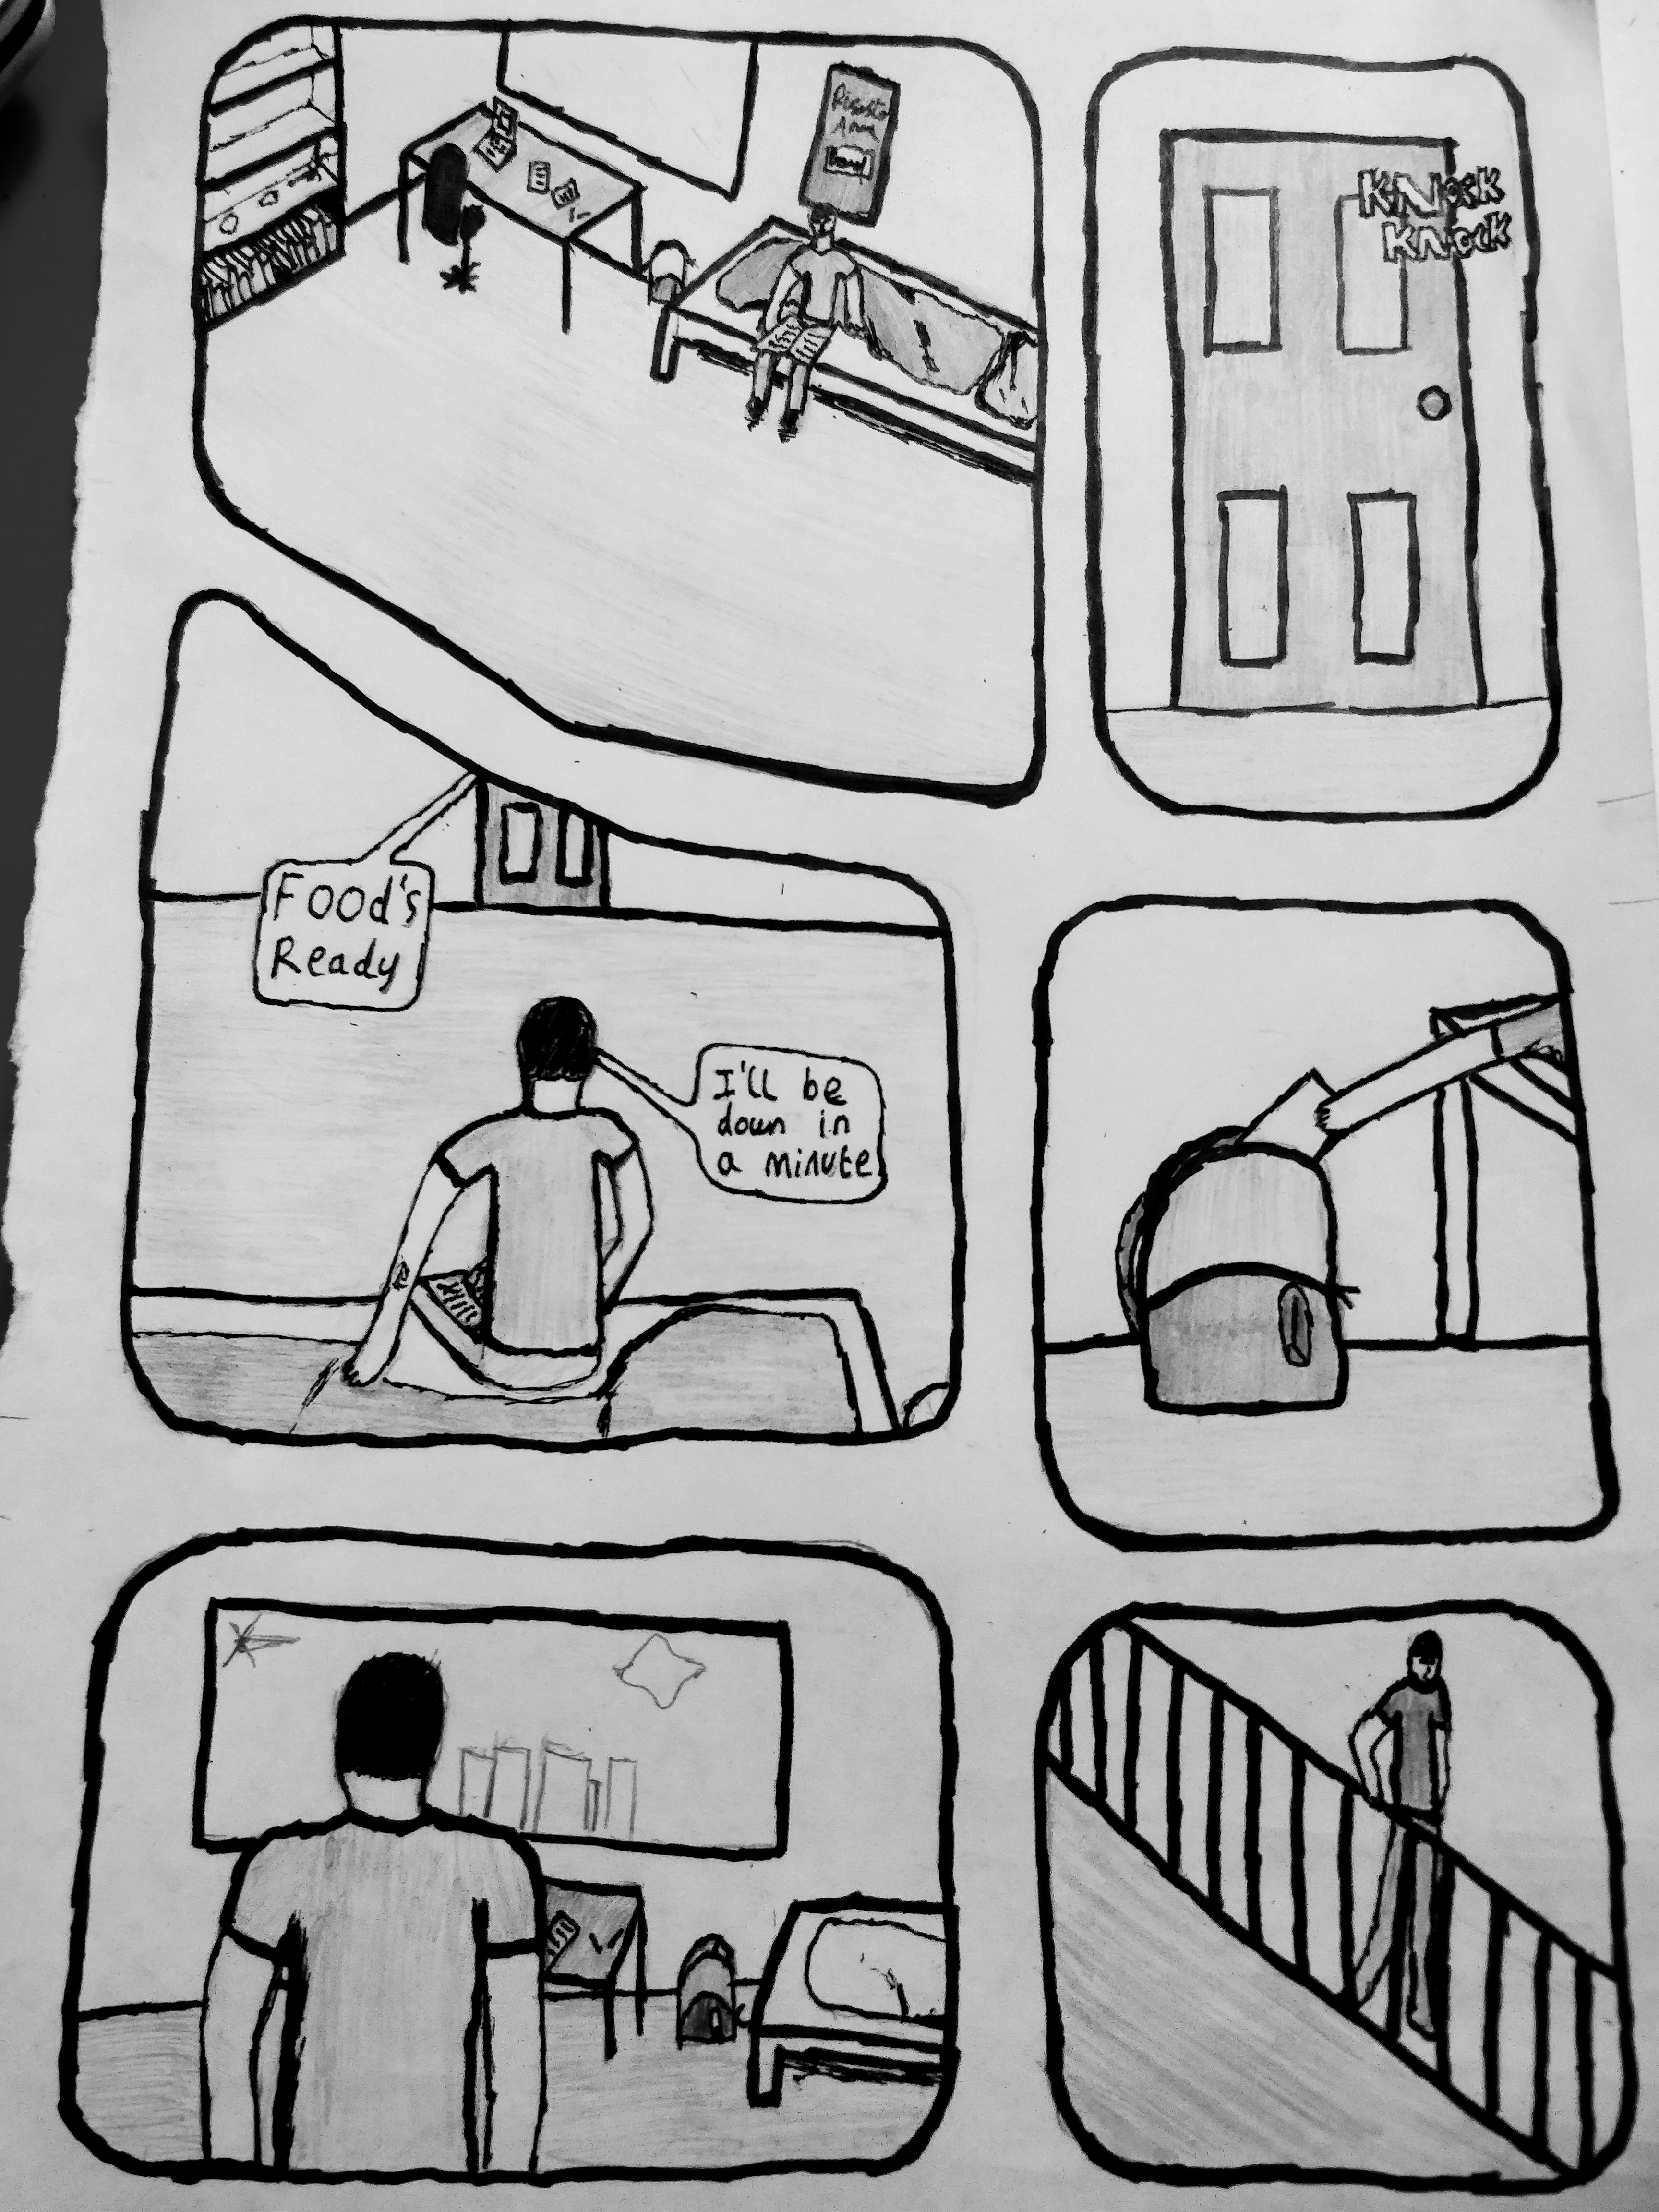 KNock
KNock
Food's
Ready
I'll be
down in
a minute